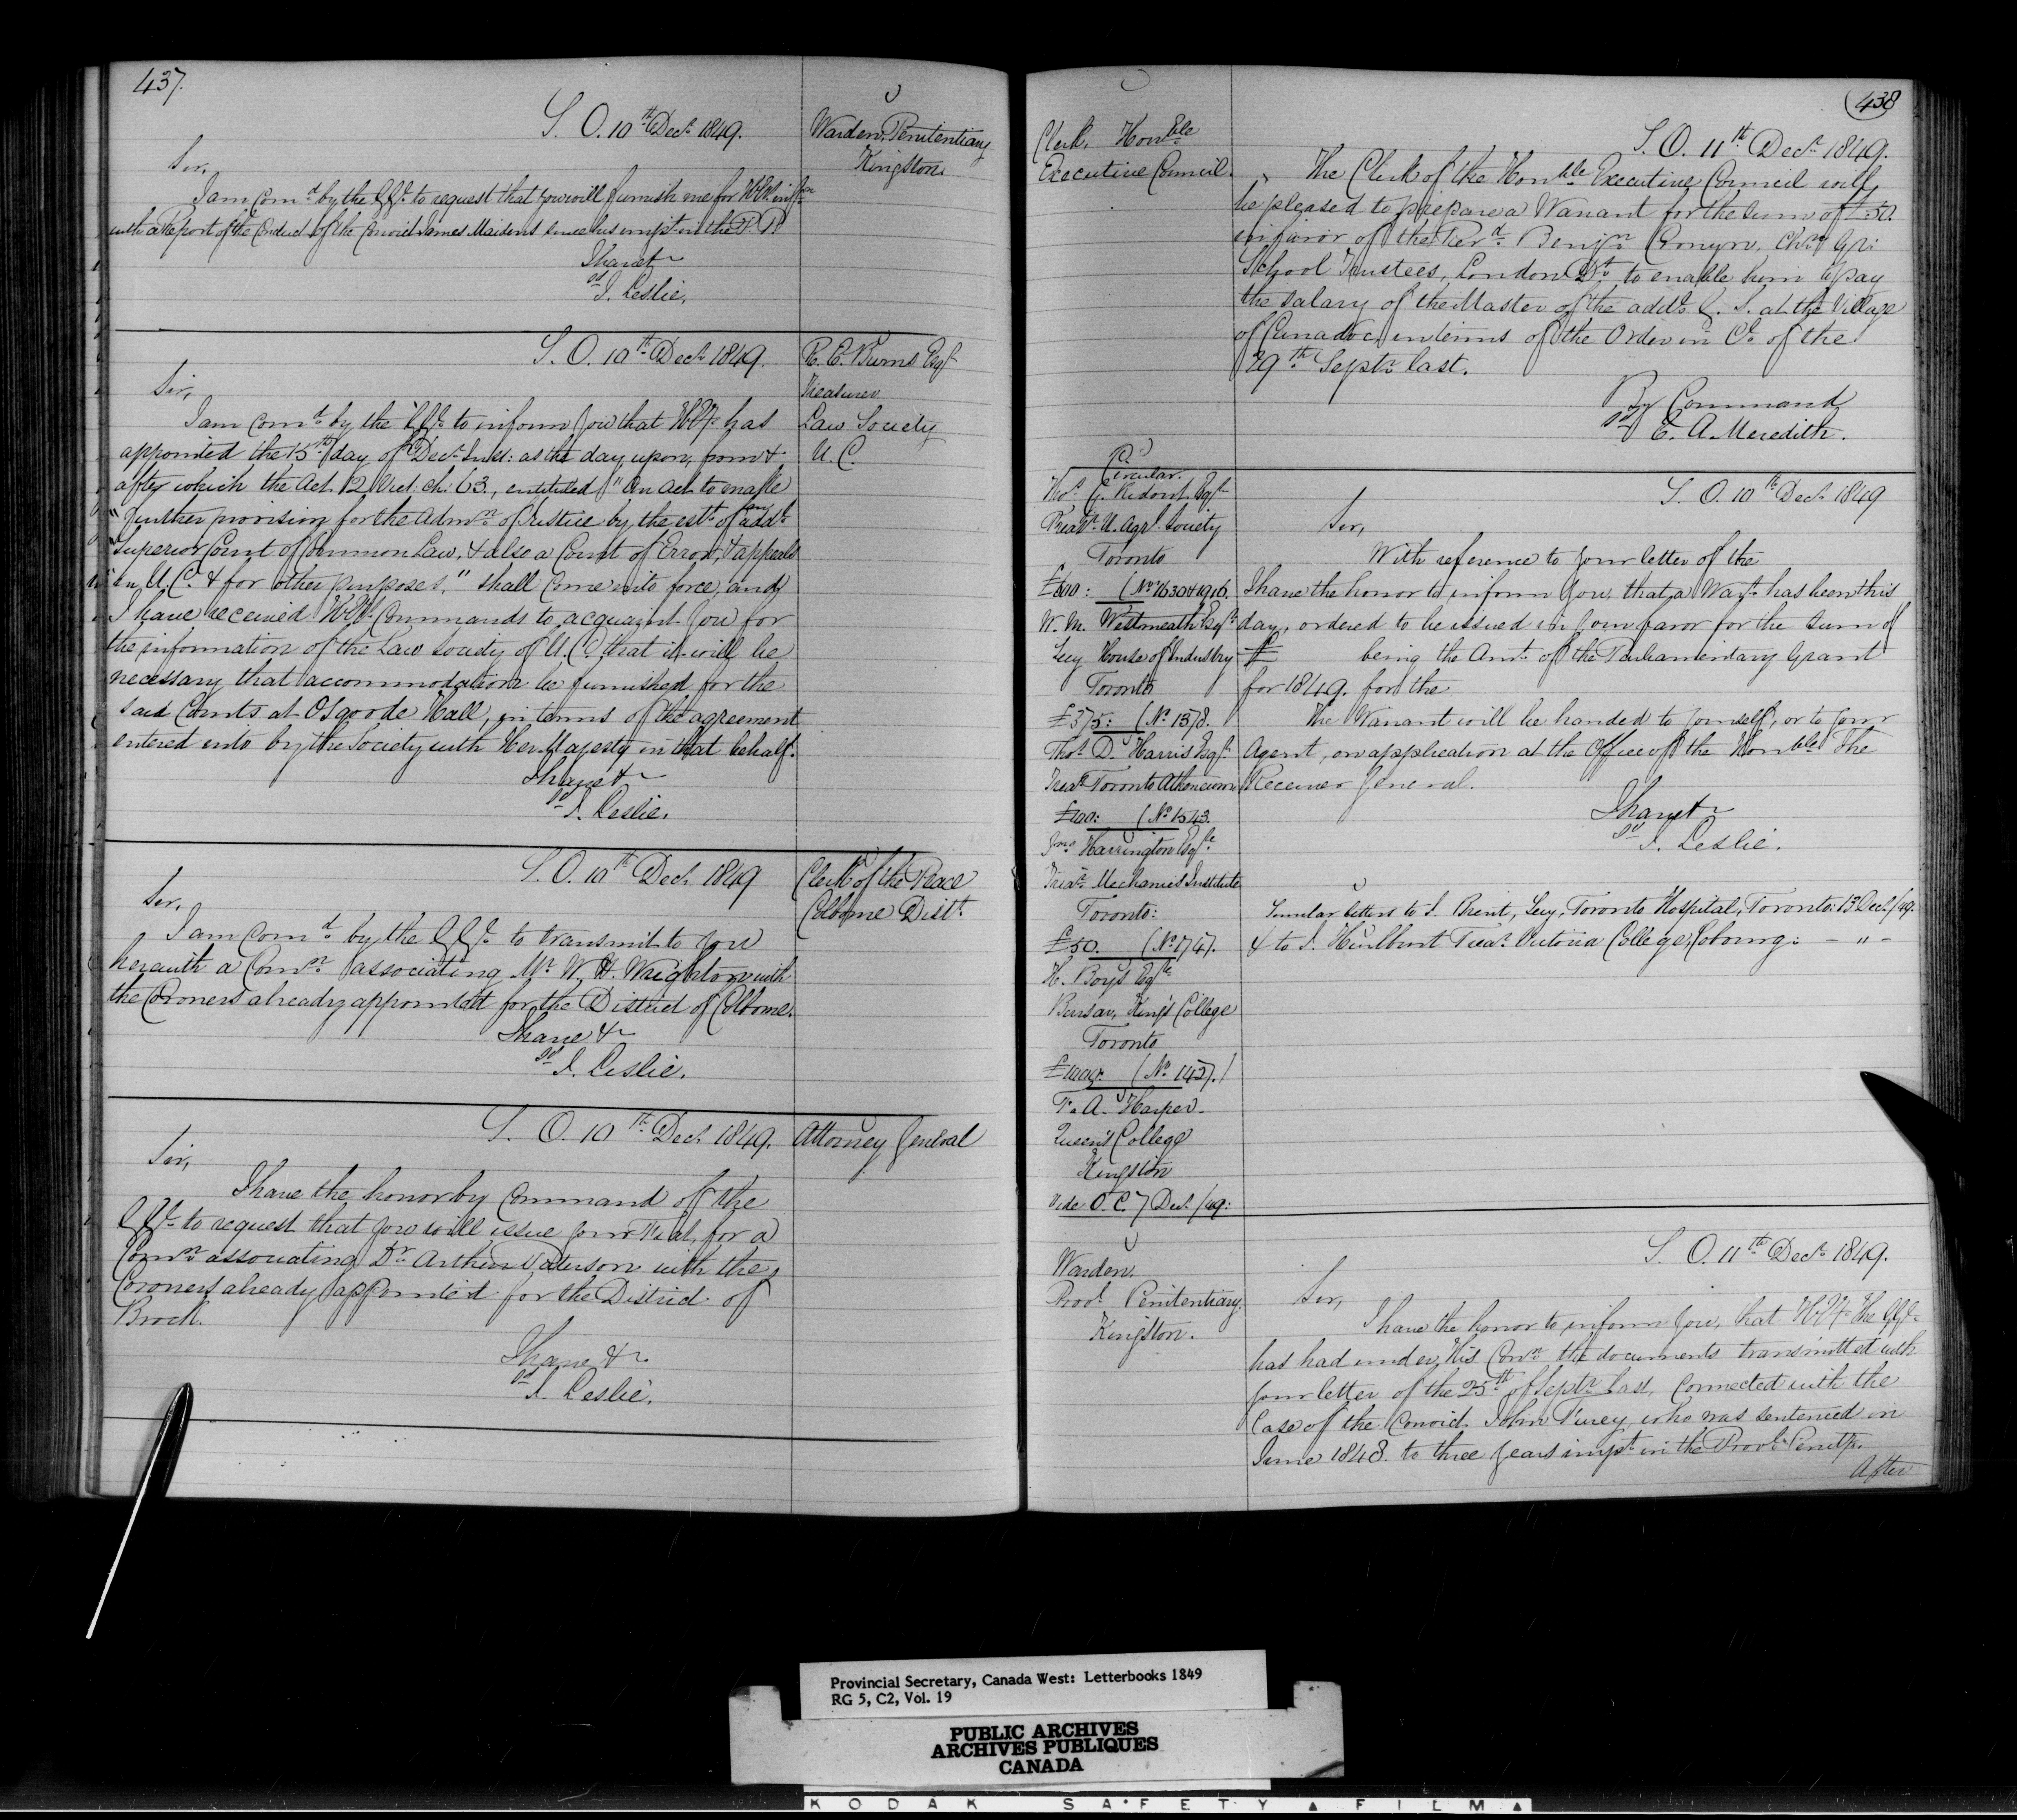 437.
S. O. 10th Decr 1849.
Warden, Penitentiary
Kingston.
Sir,
I am comd by the GGl to request that you will furnish me for H.E's infn
with a Report of the Conduct of the Convict James Maidens since his impt in the P. P.
I have &c
sd J. Leslie.
S. O. 10th Decr 1849.
R. E. Burns Esqr
Treasurer
Law Society
U. C.
Sir,
I am comd by the GGl to inform you that H.E. has
appointed the 15th day of Decr Inst: as the day upon, from &
after which the Act 12 Vict: ch: 63., entituled "An Act to make
"further provision for the Admn of Justice by the estt of an addl
"Superior Court of Common Law, & also a Court of Error & Appeal
"in U. C. & for other purposes," shall come into force, and
I have received H.E's Commands to acquaint you for
the information of the Law Society of U. C. that it will be
necessary that accommodation be furnished for the
said Courts at Osgoode Hall, in terms of the agreement
entered into by the Society with Her Majesty in that behalf.
I have &c
sd J. Leslie.
S. O. 10th Decr 1849
Clerk of the Peace
Colborne Distt
Sir,
I am comd by the GGl to transmit to you
herewith a Comn associating Mr W. H. Wrighton with
the Coroners already appointed for the District of Colborne.
I have &c
sd J. Leslie.
S. O. 10th Decr 1849.
Attorney General
Sir,
I have the honor by Command of the
GGl to request that you will issue your Fiat, for a
Comn associating Dr Arthur Paterson with the
Coroners already appointed for the District of
Brock.
I have &c
sd J. Leslie.
438
S. O. 11th Decr 1849.
Clerk, Honble
Executive Council.
The Clerk of the Honble Executive Council will
be pleased to prepare a Warrant for the sum of £50.
in favor of the Revd Benjn Cronyn, Chn Gr:
School Trustees, London Dt, to enable him to pay
the salary of the Master of the addl G. S. at the Village
of Caradoc, in terms of the Order in Cl of the
29th Septr last.
By Command
sd E. A. Meredith.
Circular.
Thos G. Ridout Esqr
Treasr U. Agrl Society
Toronto
£600: (No 1630 & 1916.
W. M. Westmeath Esqr
Secy House of Industry
Toronto
£375: (No 1578.
Thos D. Harris Esqr
Treasr Toronto Atheneum
£100: (No 1543.
Jno Harrington Esqre
Treasr Mechanics Institute
Toronto:
£50. (No 1747.
H. Boys Esqre
Bursar, King's College
Toronto
(No 1437.)
F. A. Harper
Queen's College
Kingston
Vide O. C. 7 Decr /49:
S. O. 10th Decr 1849
Sir,
With reference to your letter of the
I have the honor to inform you, that a Wart has been this
day, ordered to be issued in your favor for the sum of
£ being the Amt of the Parliamentary Grant
for 1849. for the
The Warrant will be handed to yourself, or to your
Agent, on application at the Office of the Honble The
Receiver General.
I have &c
sd J. Leslie.
Similar letters to J. Brent, Secy, Toronto Hospital, Toronto: 13 Decr /49.
& to J. Hurlburt Treasr Victoria College, Cobourg: - " -
S. O. 11th Decr 1849.
Warden,
Provl Penitentiary.
Kingston.
Sir,
I have the honor to inform you, that H. E. the GGl
has had under His Conn the documents transmitted with
your letter of the 25th of Septr last, connected with the
Case of the Convict John Furey, who was sentenced in
June 1848. to three years impt in the Provl Penity.
After
Provincial Secretary, Canada West: Letterbooks 1849
RG 5, C2, Vol. 19
PUBLIC ARCHIVES
ARCHIVES PUBLIQUES
CANADA
KODAK SAFETY FILM